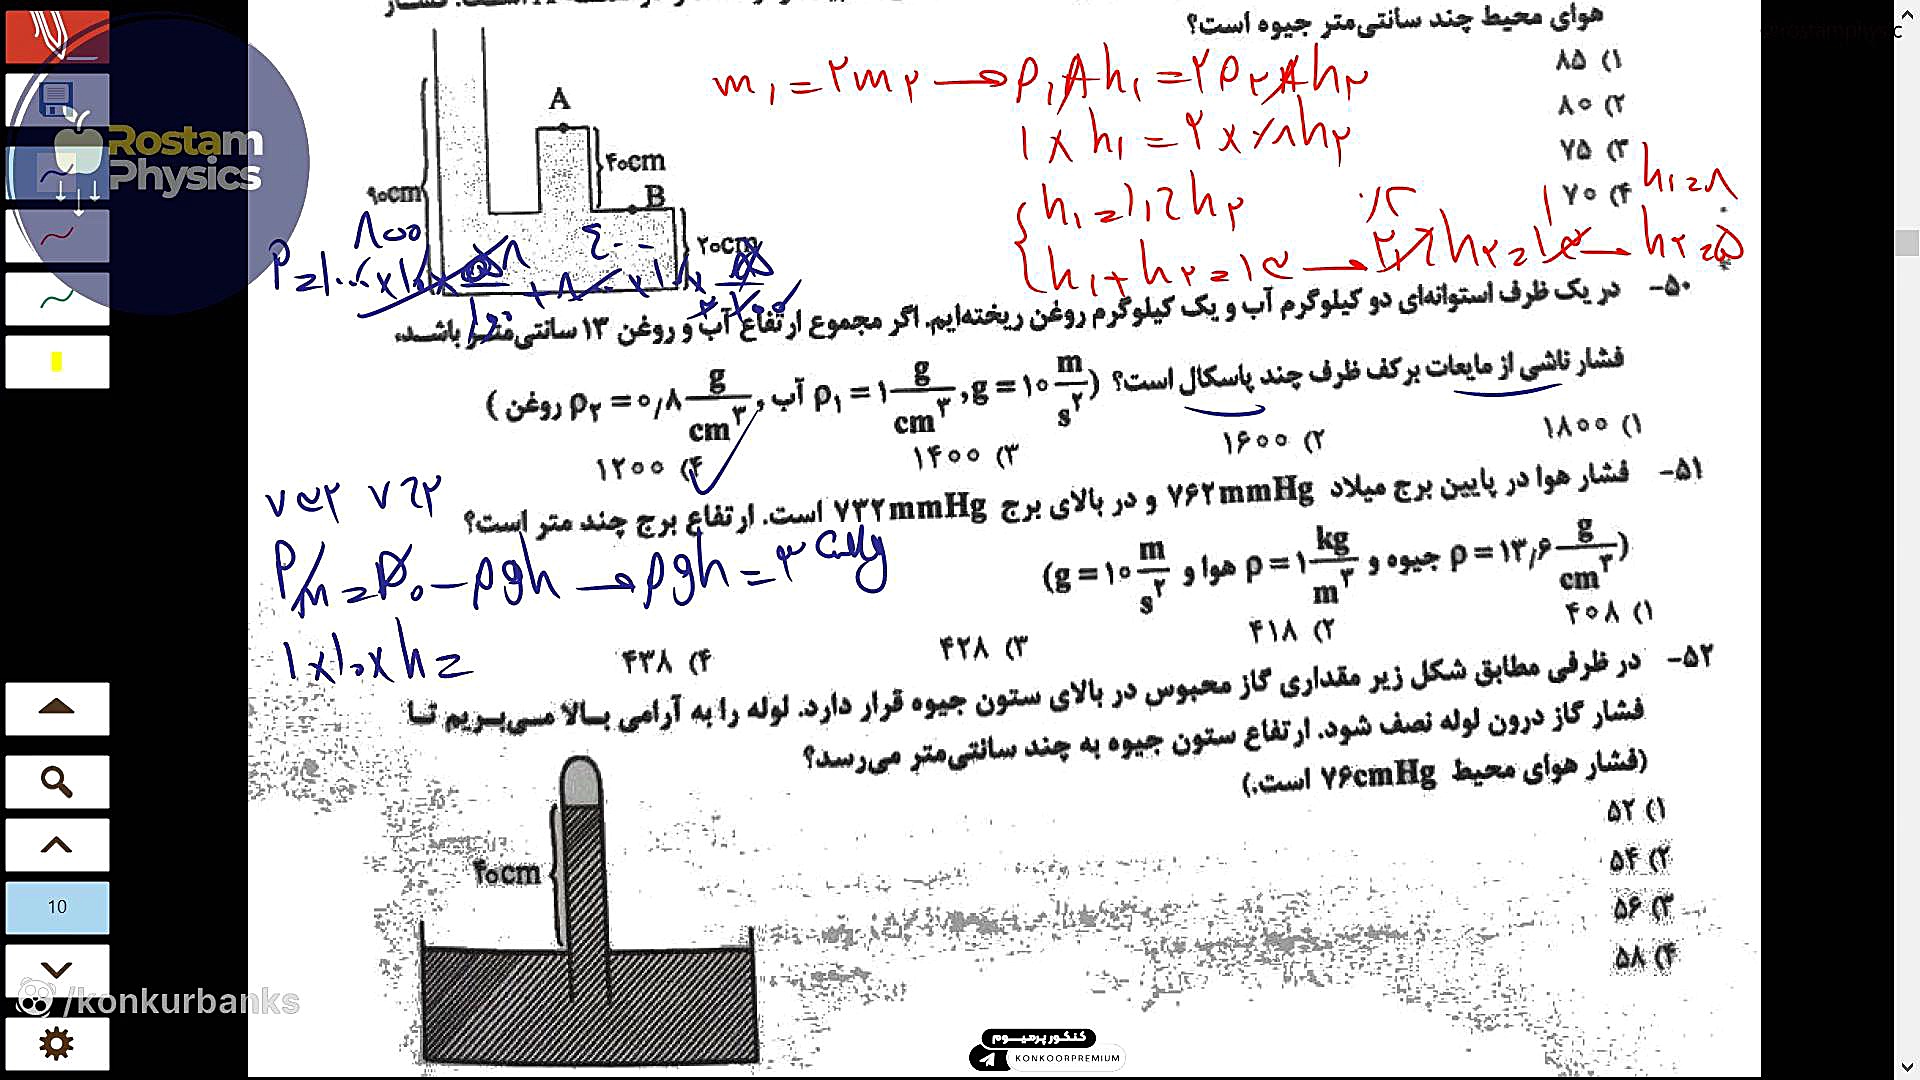 هوای محیط چند سانتی‌متر جیوه است؟
۱) ۸۵
۲) ۸۰
۳) ۷۵
۴) ۷۰
A
۴۰cm
B
۹۰cm
۲۰cm
Rostam
Physics
m₁ = ۲m₂ → ρ₁Ah₁ = ۲ρ₂Ah₂
۱ × h₁ = ۲ × ۰/۸h₂
h₁ + h₂ = ۱۳
۵۰- در یک ظرف استوانه‌ای دو کیلوگرم آب و یک کیلوگرم روغن ریخته‌ایم. اگر مجموع ارتفاع آب و روغن ۱۳ سانتی‌متر باشد،
فشار ناشی از مایعات بر کف ظرف چند پاسکال است؟ (g = ۱۰ m/s², آب ρ₁ = ۱ g/cm³, روغن ρ₂ = ۰/۸ g/cm³)
۱) ۱۸۰۰
۲) ۱۶۰۰
۳) ۱۴۰۰
۴) ۱۲۰۰
۵۱- فشار هوا در پایین برج میلاد ۷۶۲mmHg و در بالای برج ۷۳۲mmHg است. ارتفاع برج چند متر است؟
(g = ۱۰ m/s² و هوا ρ = ۱ kg/m³ و جیوه ρ = ۱۳٫۶ g/cm³)
۱) ۴۰۸
۲) ۴۱۸
۳) ۴۲۸
۴) ۴۳۸
۷۳۲ ۷۶۲
ρgh = ۳ cmHg
۱ × ۱۰ × h =
۵۲- در ظرفی مطابق شکل زیر مقداری گاز محبوس در بالای ستون جیوه قرار دارد. لوله را به آرامی بالا می‌بریم تا
فشار گاز درون لوله نصف شود. ارتفاع ستون جیوه به چند سانتی‌متر می‌رسد؟
(فشار هوای محیط ۷۶cmHg است.)
۱) ۵۲
۲) ۵۴
۳) ۵۶
۴) ۵۸
۴۰cm
10
/konkurbanks
کنکور پرمیوم
KONKOORPREMIUM